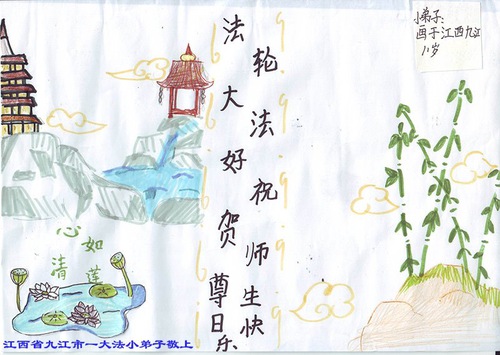 法轮大法好祝贺师尊生日快乐
小弟子:
画于江西九江
11岁
心如清莲
江西省九江市一大法小弟子敬上